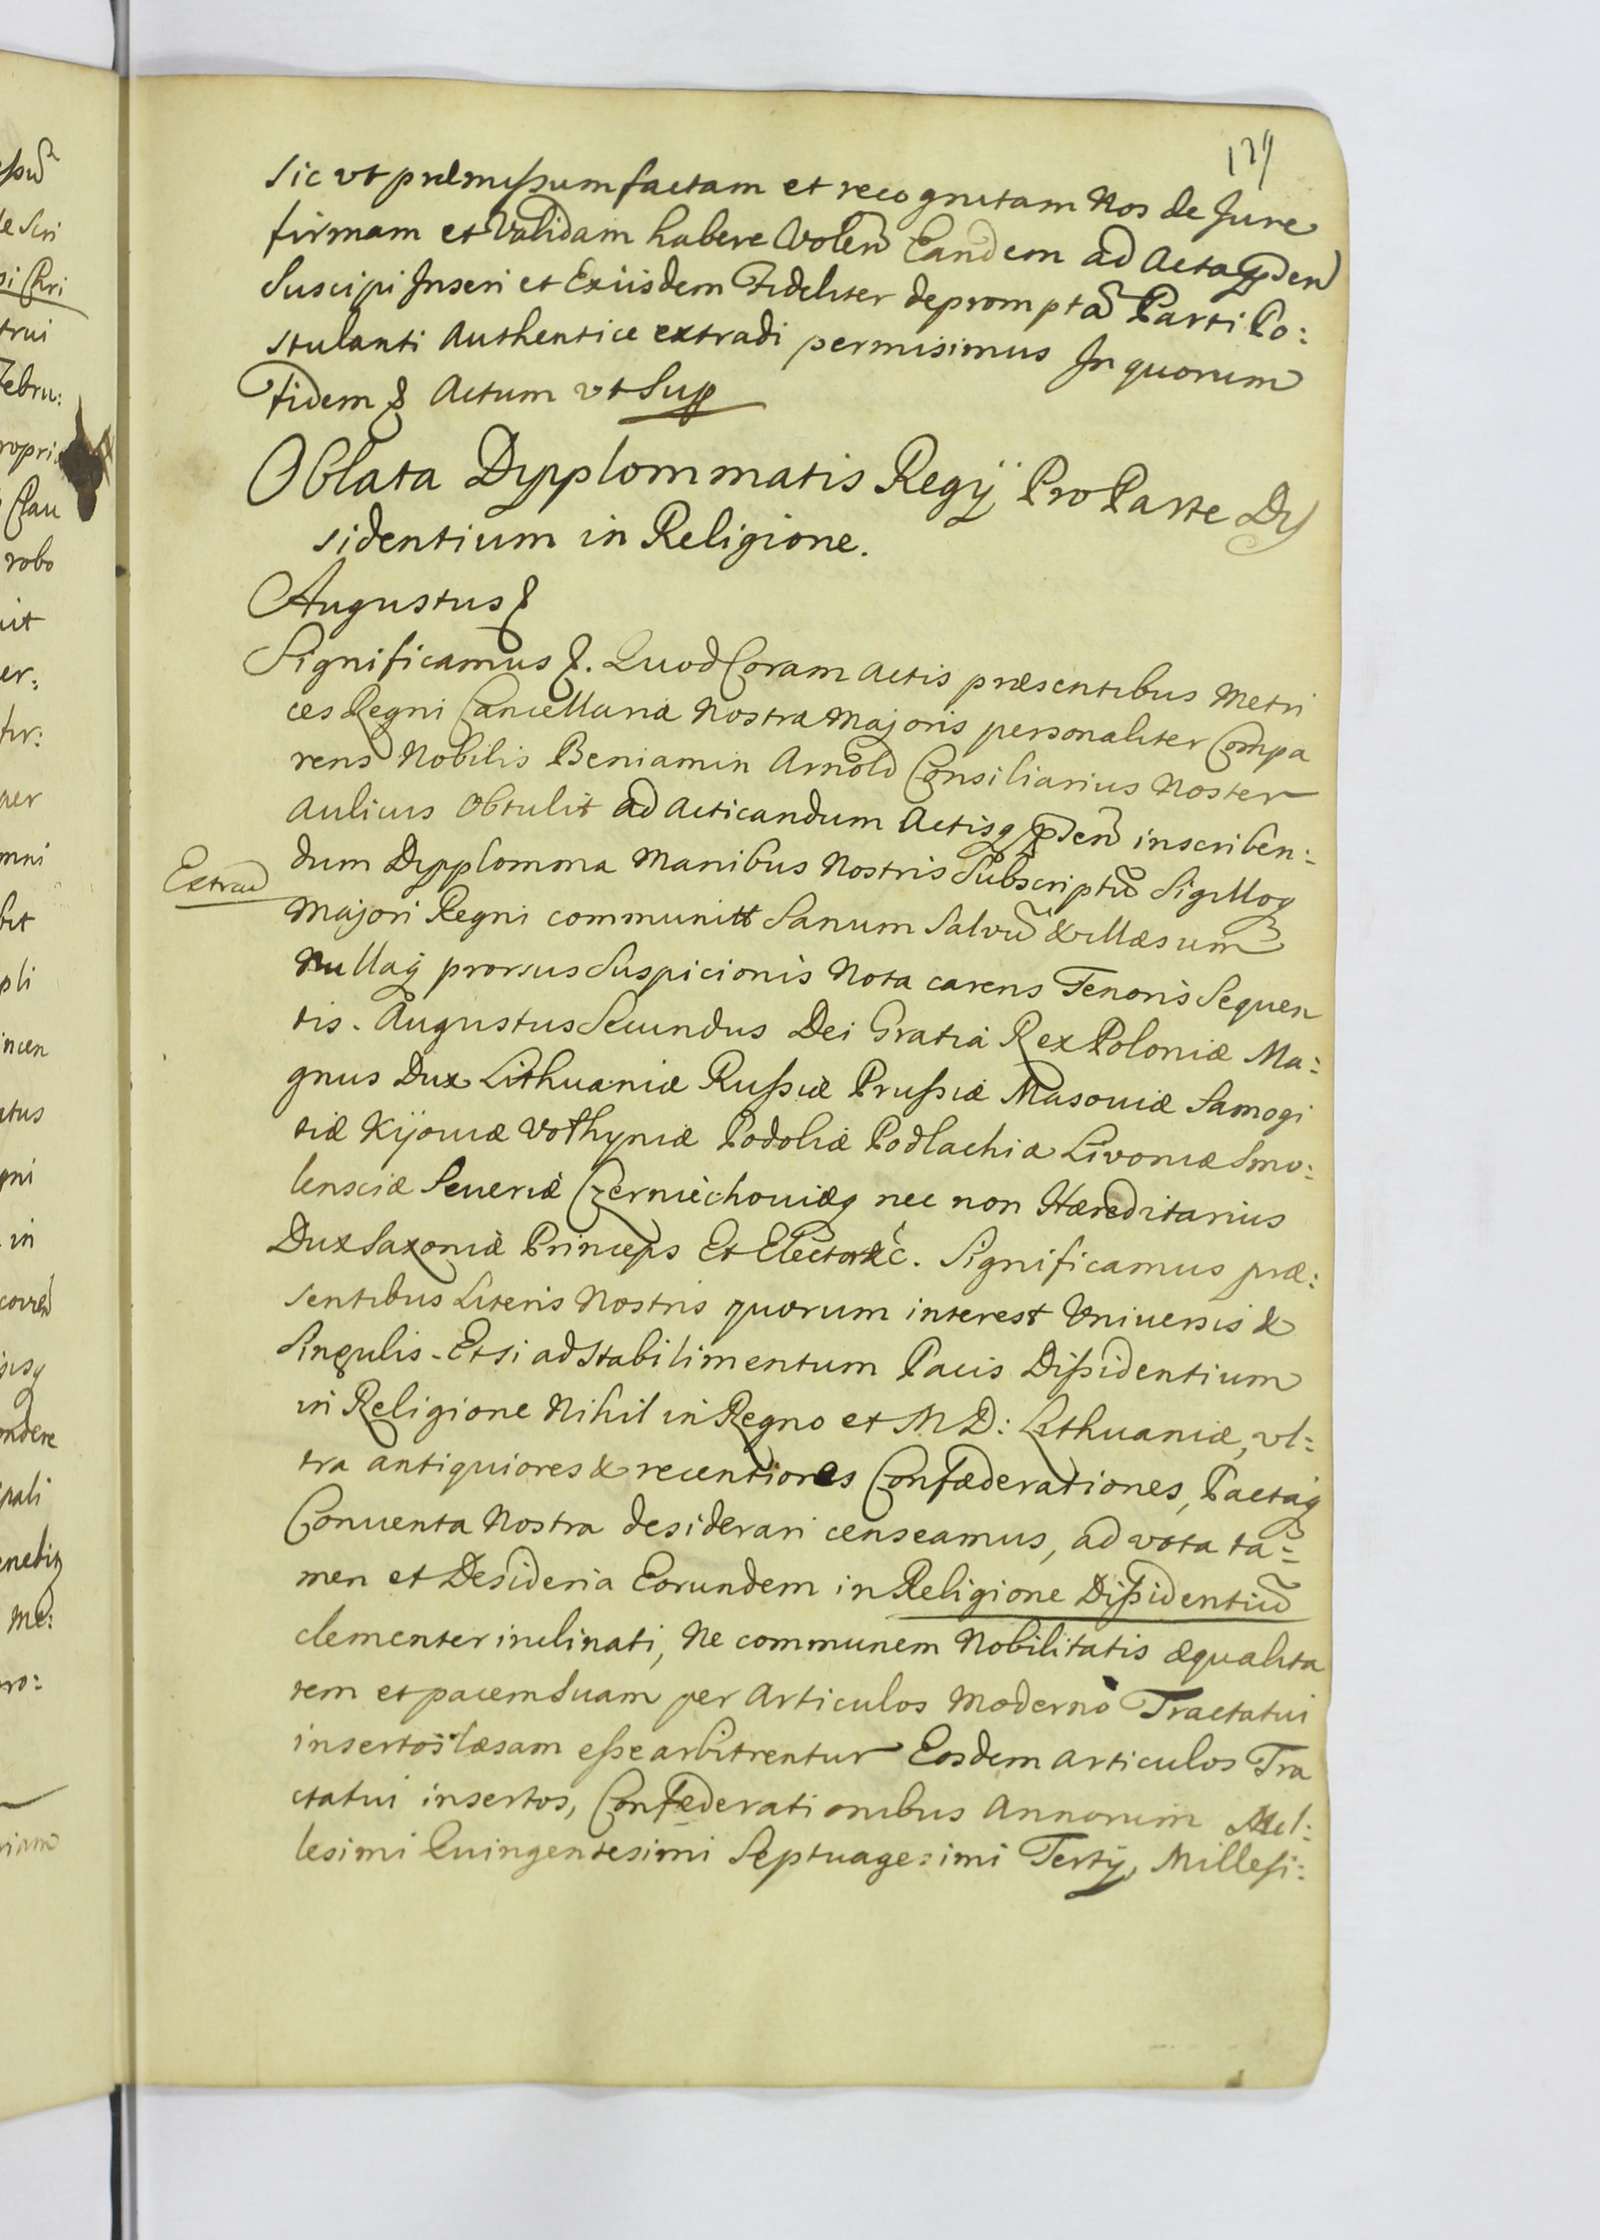 Sic vt præmissum factam et recognitam Nos de Jure
firmam et Validam habere Volen̄ Eandem ad Acta p̄den̄
Suscipi Inseri et Exiisdem Fideliter depromptā Parti Po:
stulanti Authentice extradi permisimus In quorum
Fidem & Actum vt Sup
Oblata Dypplommatis Regÿ Pro Parte Dis
sidentium in Religione.
Augustus &
Significamus &. Quod Coram Actis præsentibus Metri
ces Regni Cancellaria Nostra Majoris personaliter Compa
rens Nobilis Beniamin Arnold Consiliarius Noster
Aulicus Obtulit ad Acticandum Actisq p̄den̄ inscriben:
Extrad
dum Dypplomma Manibus Nostris Subscriptū Sigilloq
Majori Regni communitt Sanum Salvū & illæsum
Nullaq prorsus Suspicionis Nota carens Tenoris Sequen
tis. Augustus Secundus Dei Gratia Rex Poloniæ Ma:
gnus Dux Lithuaniæ Russiæ Prussiæ Masouiæ Samogi
tiæ Kijouiæ Volhyniæ Podoliæ Podlachia Livoniæ Smo:
lensciæ Seueriæ Czerniechouiæq nec non Hæreditarius
Dux Saxoniæ Princeps Et Elector &c. Significamus præ:
sentibus Literis Nostris quorum interest Vniuersis &
Singulis. Etsi ad Stabilimentum Pacis Dissidentium
in Religione Nihil in Regno et M D: Lithuaniæ, vl:
tra antiquiores & recentiores Confæderationes, Pactaq
Conuenta Nostra desiderari censeamus, ad vota ta:
men et Desideria Eorundem in Religione Dissidentiū
clementer inclinati, Ne communem Nobilitatis æqualita
tem et pacem Suam per Articulos Moderno Tractatui
insertos læsam esse arbitrentur Eosdem articulos Tra
ctatui insertos, Confederationibus Annorum Mil:
lesimi Quingentesimi Septuagesimi Tertÿ, Millesi: